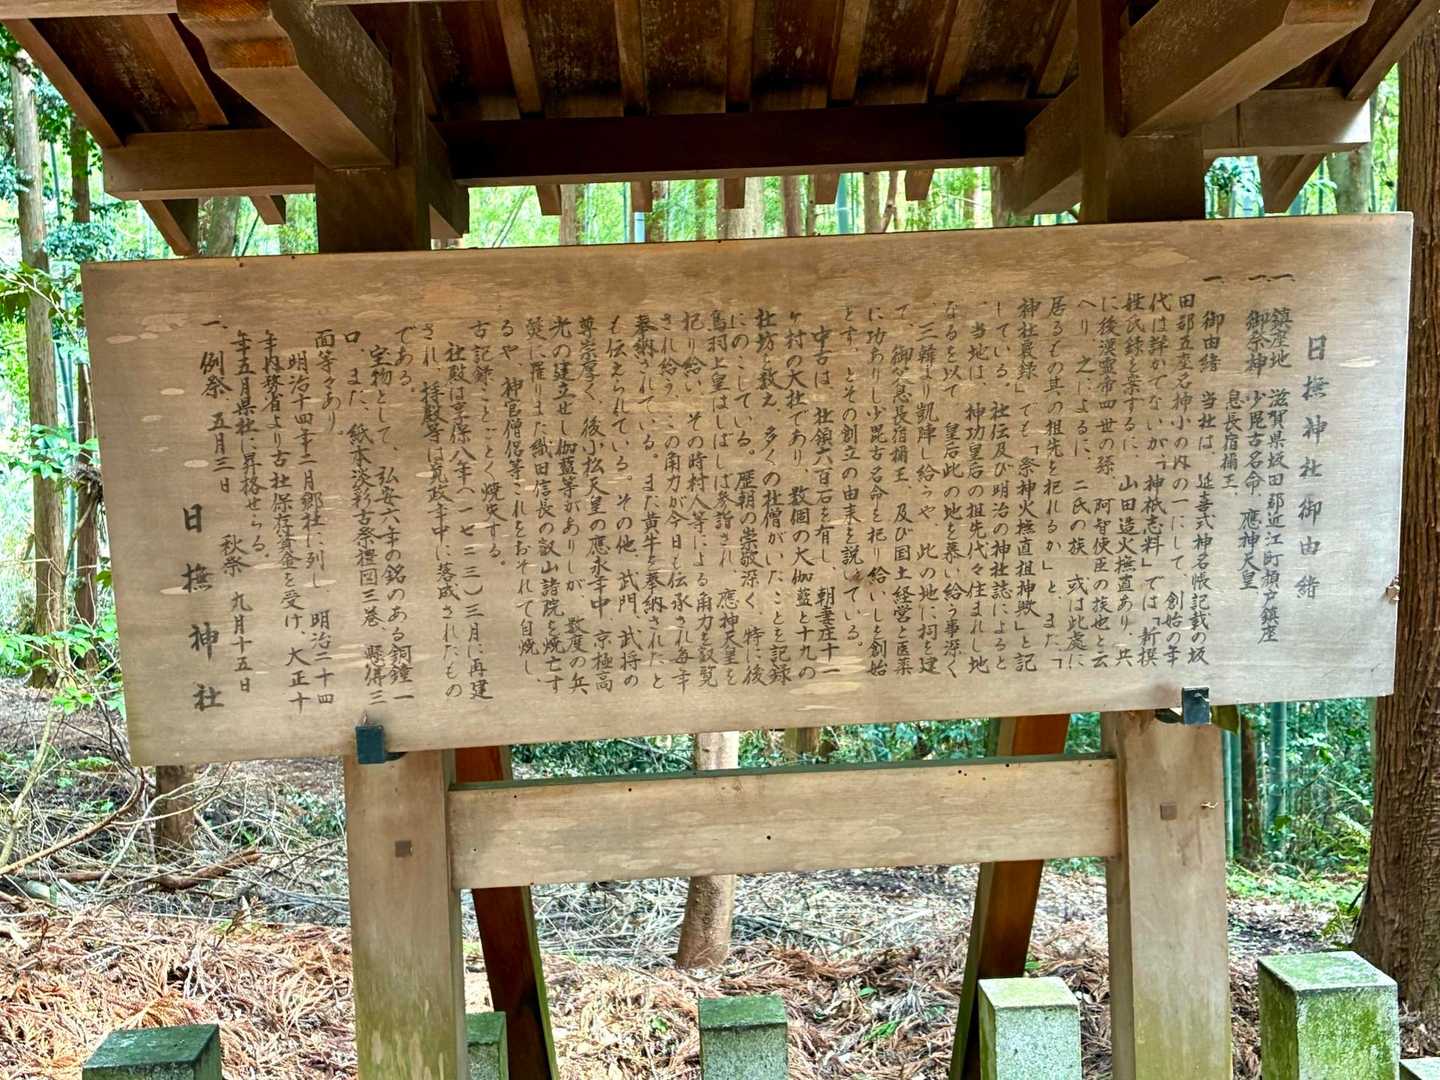 日撫神社御由緒
一、鎮座地 滋賀県坂田郡近江町顔戸鎮座
一、御祭神 少毘古名命、應神天皇
息長宿禰王、
一、御由緒 当社は、延喜式神名帳記載の坂
田郡五座名神小の内の一にして、創始の年
代は詳かでないが、「神祇志料」では「新撰
姓氏録を案するに、山田造火撫直あり、共
に後漢靈帝四世の孫、阿智使臣の族也と云
へり、之によるに、二氏の族、或は此處に
居るもの其の祖先を祀れるか」と、また「
神社覈録」でも「祭神火撫直祖神歟」と記
している。社伝及び明治の神社誌によると
、当地は、神功皇后の祖先代々住まれし地
なるを以て、皇后此の地を慕い給う事深く
、三韓より凱陣し給うや、此の地に祠を建
て、御父息長宿禰王、及び国土経営と医薬
に功ありし少毘古名命を祀り給いしを創始
とす、とその創立の由来を説いている。
中古は、社領六百石を有し、朝妻庄十一
ヶ村の大社であり、数個の大伽藍と十九の
社坊を数え、多くの社僧がいたことを記録
にのこしている。歴朝の崇敬深く、特に後
鳥羽上皇はしばしば参詣され、應神天皇を
祀り給い、その時村人等による角力を叡覧
され給う、この角力が今日も伝承され毎年
奉納されている。また黄牛を奉納されたと
も伝えられている。その他、武門、武将の
尊崇厚く、後小松天皇の應永年中、京極高
光の建立せし伽藍等がありしが、数度の兵
燹に罹りまた織田信長の叡山諸院を焼亡す
るや、神官僧侶等これをおそれて自焼し、
古記録ことごとく焼失する。
社殿は享保八年(一七二三)三月に再建
され、拝殿等は寛政年中に落成されたもの
である。
宝物として、弘安六年の銘のある銅鐘一
口、また、紙本淡彩古祭禮図三巻、懸佛三
面等々あり
明治十四年二月郷社に列し 明治二十四
年内務省より古社保存基金を受け、大正十
年五月県社に昇格せらる。
一、例祭 五月三日 秋祭 九月十五日
日撫神社